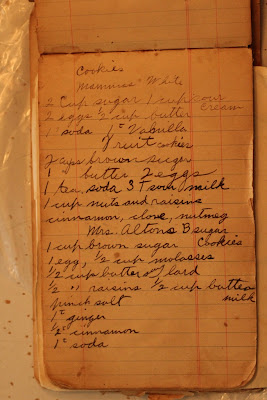 Cookies
Mamuus White
2 Cup sugar 1 cup sour cream
2 eggs 1/2 cup butter
1" soda 1" Vanilla
Fruit cookies
2 cups brown suger
1 " butter 2 eggs
1 tea. soda 3 T sour milk
1 cup nuts and raisins
cinnamon, clove, nutmeg
Mrs. Altons B sugar Cookies
1 cup brown sugar
1 egg, 1/2 cup molasses
1/2 cup butter or lard
1/2 " raisins 1/2 cup butter milk
pinch salt
1" ginger
1/2" cinnamon
1" soda